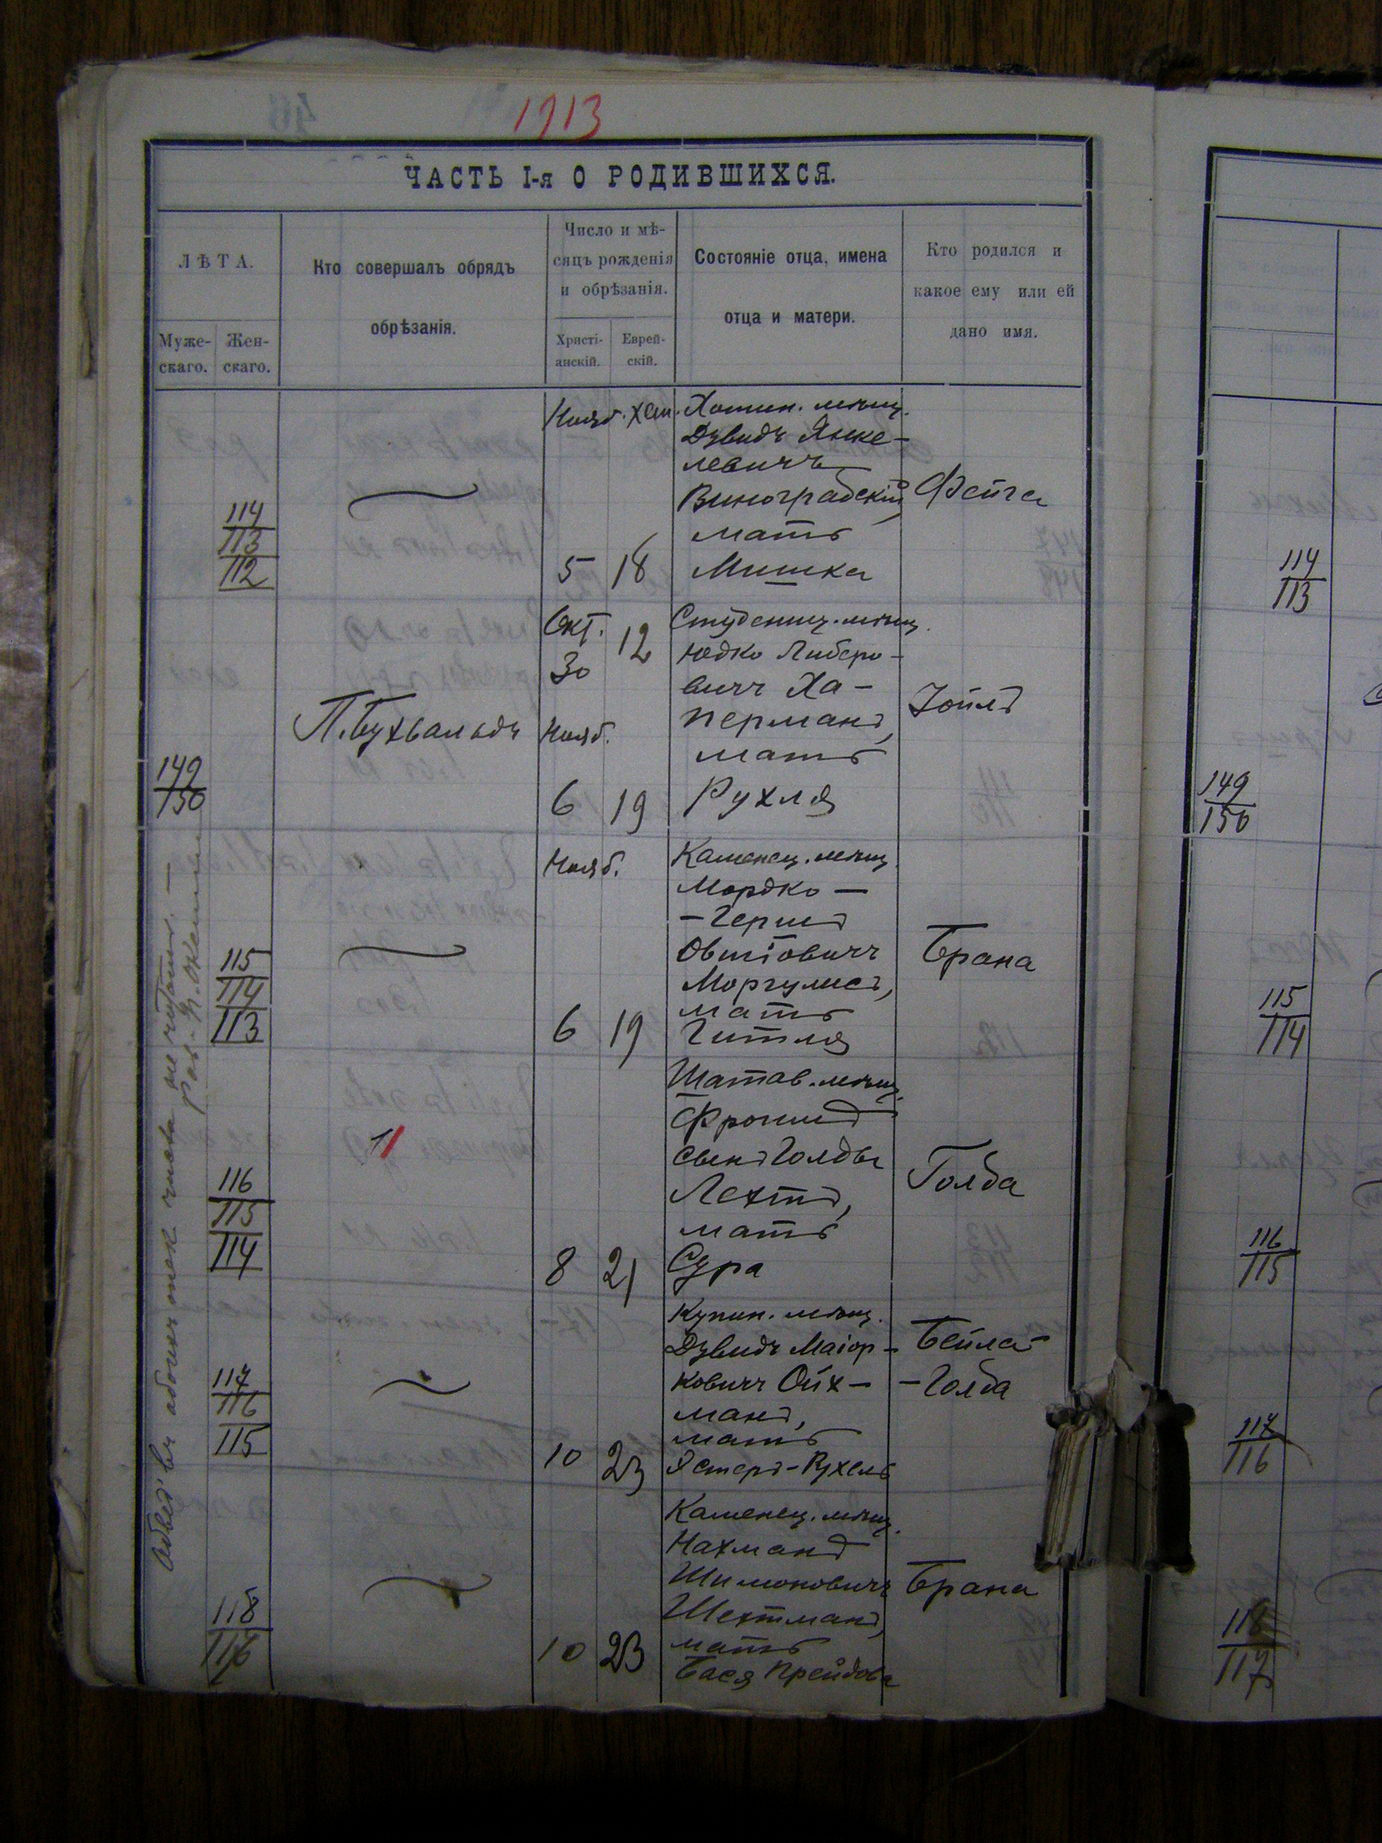 1913
ЧАСТЬ I-я О РОДИВШИХСЯ.
ЛѢТА.
Муже-
скаго.
Жен-
скаго.
Кто совершалъ обрядъ
обрѣзанія.
Число и мѣ-
сяцъ рожденія
и обрѣзанія.
Христі-
анскій.
Еврей-
скій.
Состояніе отца, имена
отца и матери.
Кто родился и
какое ему или ей
дано имя.
114
113
112
Нояб.
5
18
Хотин. мѣщ.
Дувидъ Янке-
левичъ
Виноградскій,
мать
Мишка
Фейга
149
150
П. Бухвальдъ
Окт.
30
12
Нояб.
6
19
Студениц. мѣщ.
Юдко Либеро-
вичъ Ха-
перманъ,
мать
Рухля
Іойлъ
115
114
113
Нояб.
6
19
Каменец. мѣщ.
Мордко-
-Гершъ
Овшіовичъ
Моргулисъ,
мать
Гитля
Брана
116
115
114
8
21
Шатав. мѣщ.
Фроимъ
сынъ Голды
Лехтъ,
мать
Сура
Голда
117
116
115
10
23
Купин. мѣщ.
Дувидъ Маіор-
ковичъ Ойх-
манъ,
мать
Эстеръ-Рухель
Бейла-
-Голда
118
116
10
23
Каменец. мѣщ.
Нахманъ
Шимоновичъ
Шехтманъ,
мать
Бася Прейдва
Брана
114
113
149
150
115
114
116
115
117
116
118
117